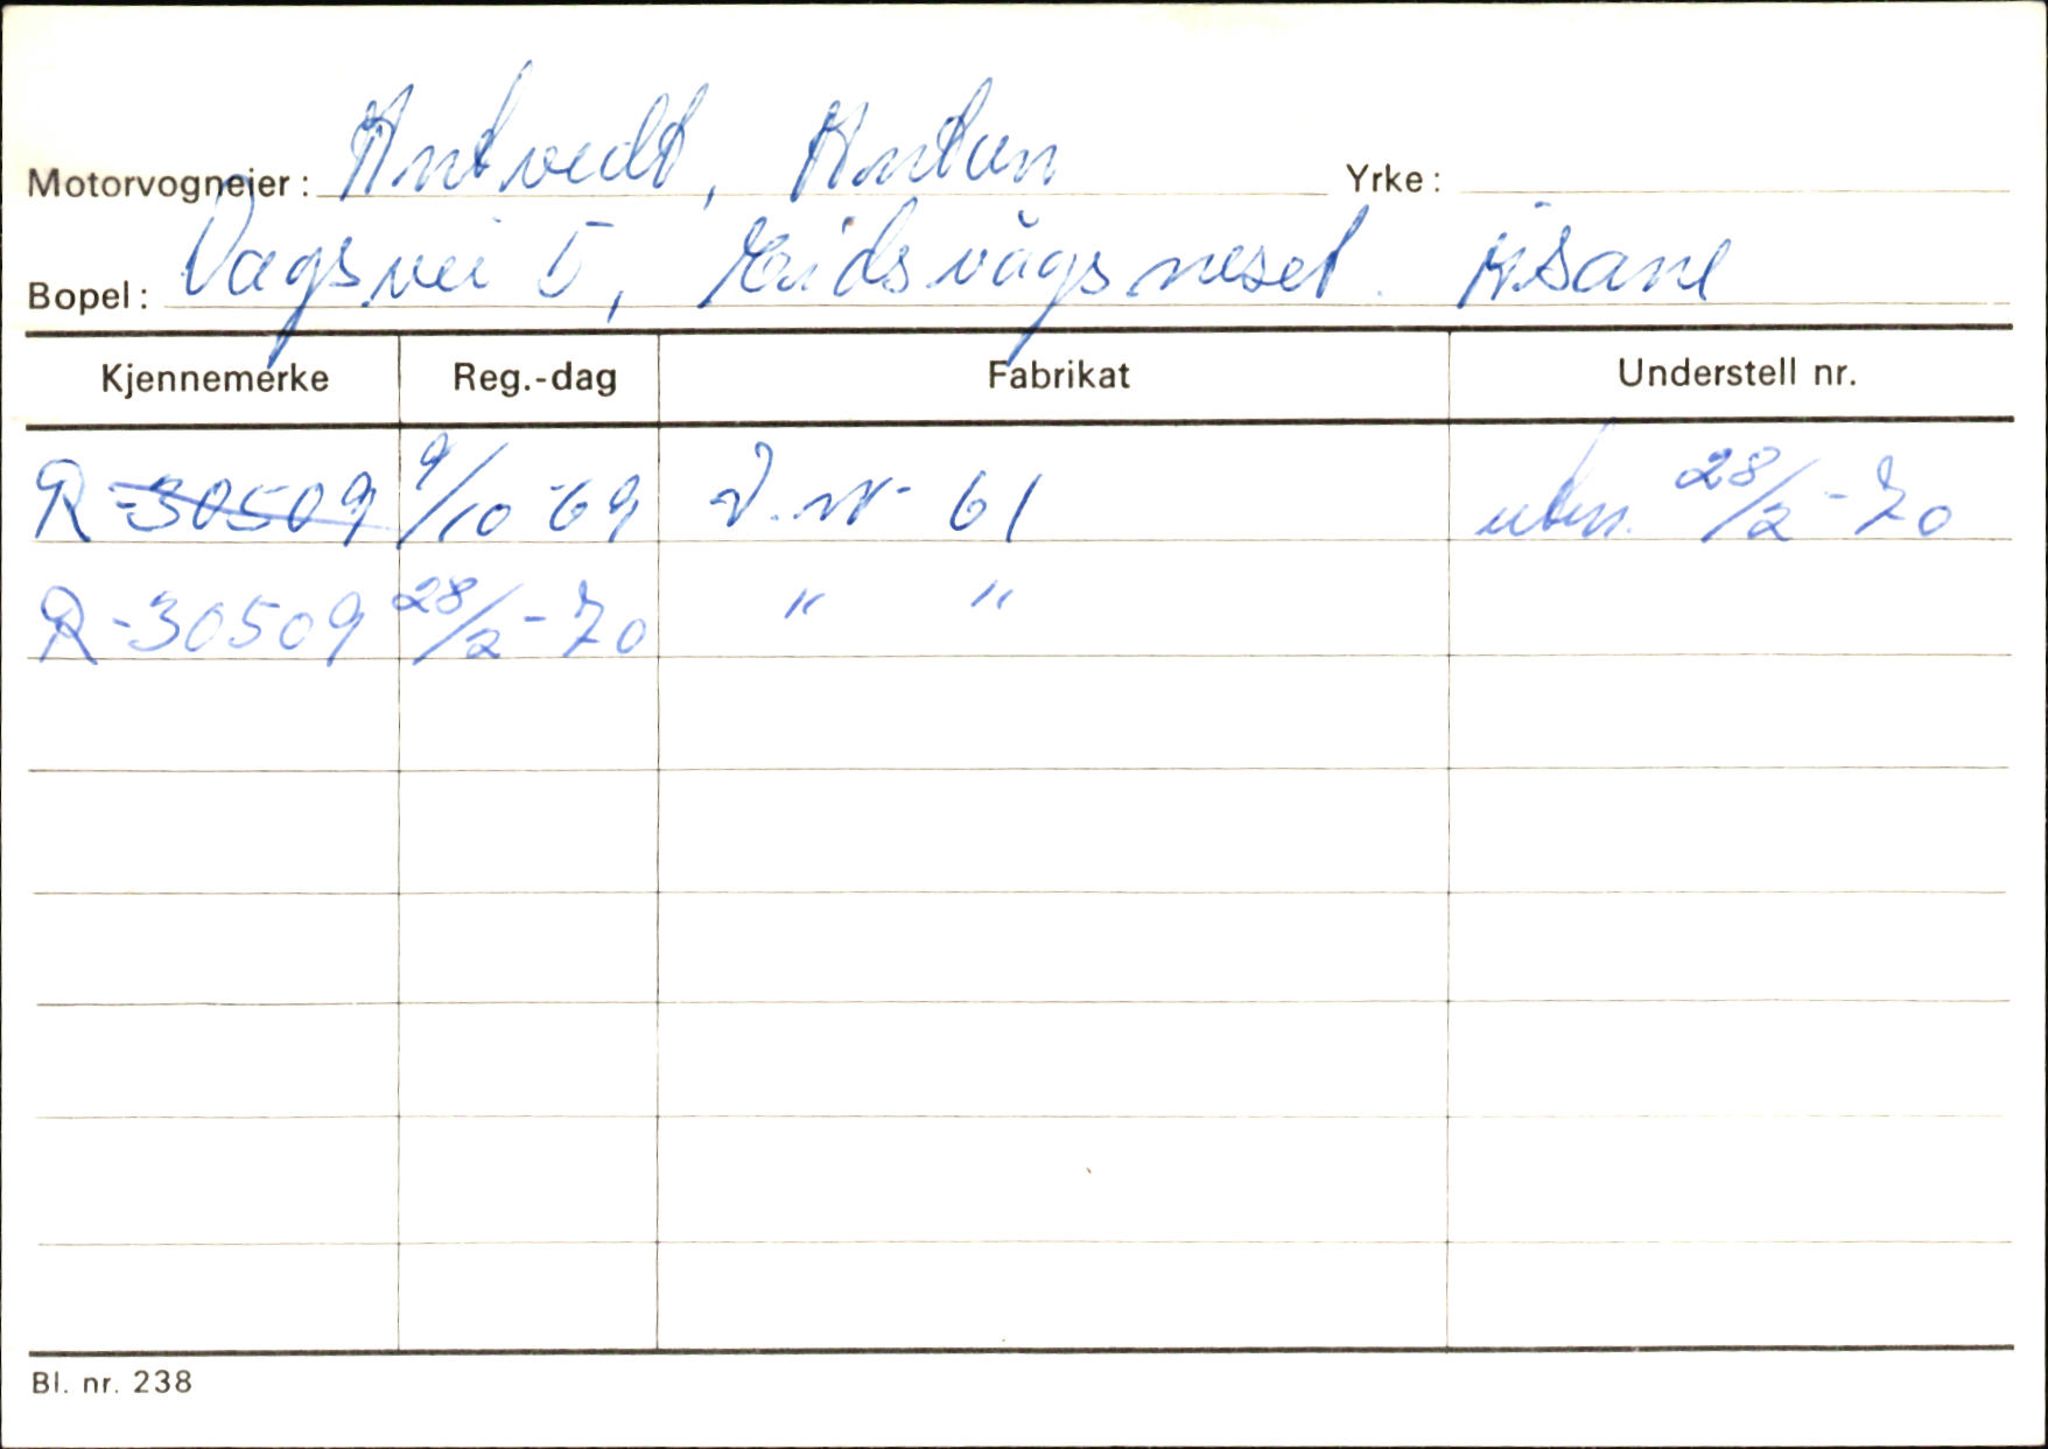 Motorvogneier: Antvedt, Anton Yrke:
Bopel: Dagsvei 5, Eidsvågsneset. Åsane
Kjennemerke Reg.-dag Fabrikat Understell nr.
R-30509 9/10-69 V.W- 61 28/2-70
R-30509 28/2-70 " "
Bl. nr. 238